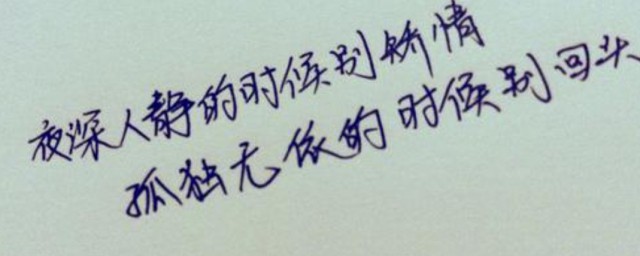 夜深人静的时候别矫情
孤独无依的时候别回头